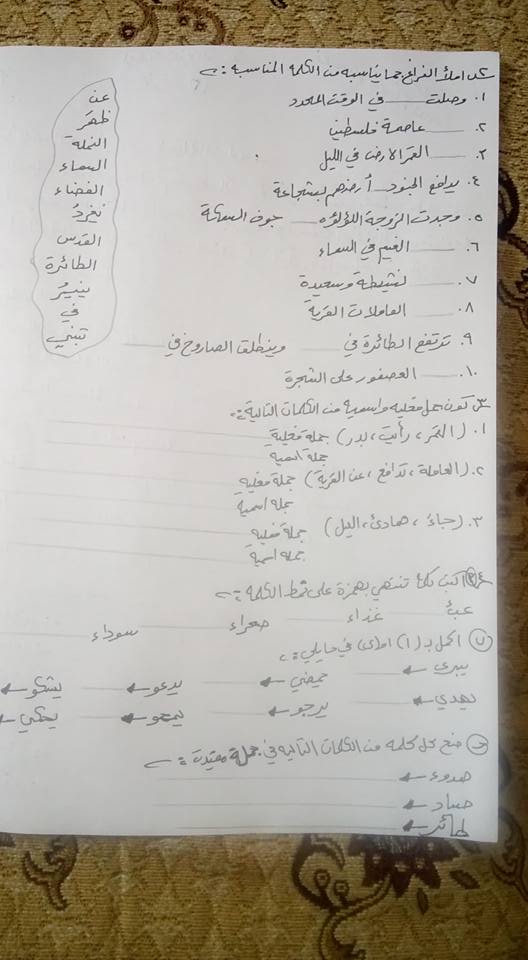 س١ املأ الفراغ مما يناسبه من الكلمة المناسبة :
١. وصلت ____ في الوقت المحدد
٢. ____ عاصمة فلسطين
٣. ____ القمر الأرض في الليل
٤. يدافع الجنود ____ أرضهم بشجاعة
٥. وجدت الزوجة اللؤلؤة ____ جوف السمكة
٦. ____ الغيم في السماء
٧. ____ نشيطة وسعيدة
٨. ____ العاملات القرية
٩. ترتفع الطائرة في ____ وينطلق الصاروخ في ____
١٠. ____ العصفور على الشجرة
عن
ظهر
النملة
السماء
الفضاء
يغرد
القدس
الطائرة
ينير
في
تبني
س٣ كون جمل فعلية واسمية من الكلمات التالية :
١. (القمر، رأيت، بدر) جملة فعلية
جملة اسمية
٢. (العاملة، تدافع، عن القرية) جملة فعلية
جملة اسمية
٣. (جاء، هادئ، الليل) جملة فعلية
جملة اسمية
اكتب كلمة تنتهي بهمزة على نمط الكلمة :
عبء غذاء صحراء سوداء
٧ اكمل بـ (ا) أو (ى) في ما يلي :
يبري يمضي يدعو يشكو
يهدي يرجو يمحو يحكي
ضع كل كلمة من الكلمات التالية في جملة مفيدة :
هدوء
صياد
طائر